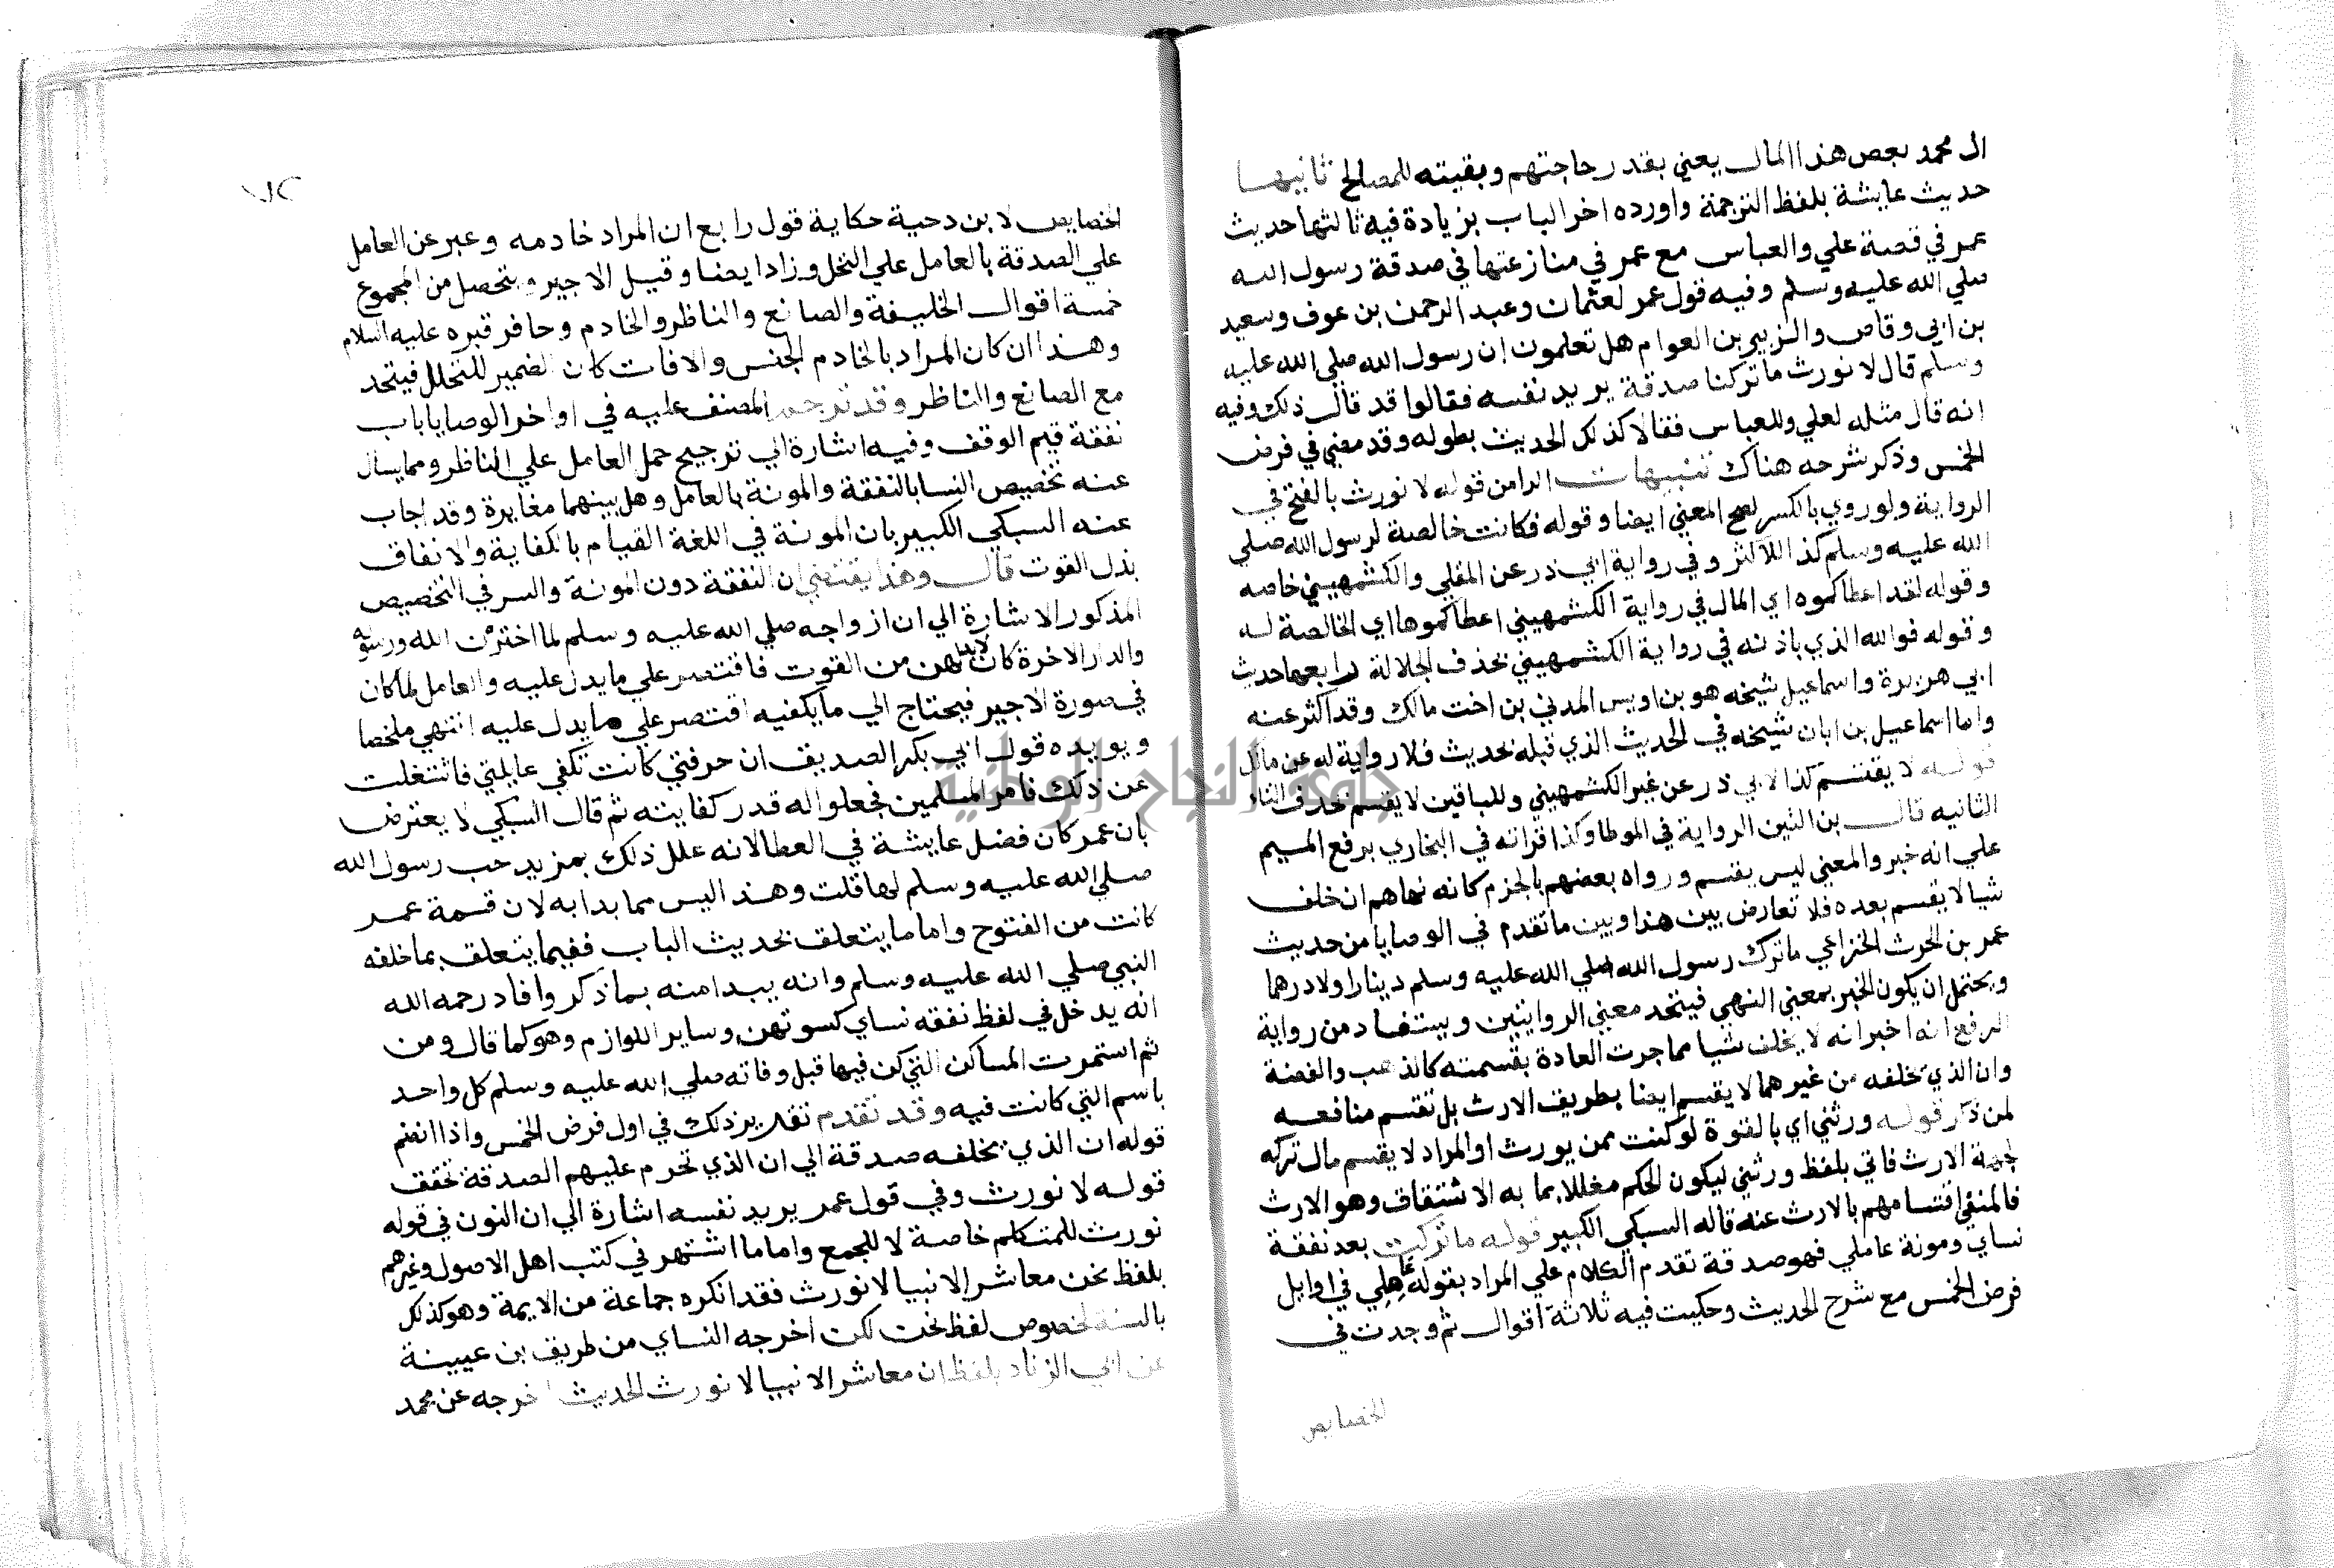 ال محمد بعض هذا المال يعني بقدر حاجتهم وبقيته للمصالح ثانيها
حديث عايشة بلفظ الترجمة واورده اخر الباب بزيادة فيه ثالثها حديث
عمر في قصة علي والعباس مع عمر في منازعتها في صدقة رسول الله
صلي الله عليه وسلم وفيه قول عمر لعثمان وعبد الرحمن بن عوف وسعيد
بن ابي وقاص والزبير بن العوام هل تعلمون ان رسول الله صلي الله عليه
وسلم قال لا نورث ما تركنا صدقة يريد نفسه فقالوا قد قال ذلك وفيه
انه قال مثله لعلي وللعباس فقالا كذلك الحديث بطوله وقد مضي في فرض
الخمس وذكر شرحه هناك تنبيهات الرا من قوله لا نورث بالفتح في
الرواية ولو روي بالكسر لصح المعني ايضا وقوله فكانت خالصة لرسول الله صلي
الله عليه وسلم كذا للاكثر وفي رواية ابي ذر عن المقلي والكشمهيني خاصه
وقوله لقد اعطاكموه اي المال في رواية الكشمهيني اعطاكموها اي الخالصة له
وقوله فوالله الذي باذنه في رواية الكشمهيني بحذف الجلالة رابعها حديث
ابي هريرة واسماعيل شيخه هو بن اويس المدني بن اخت مالك وقد اكثر عنه
واما اسماعيل بن ابان شيخه في الحديث الذي قبله بحديث فلا رواية له عن مالك
قوله لا يقتسم كذا لابي ذر عن غير الكشمهيني وللباقين لا يقسم بحذف التاء
الثانيه قال بن التين الرواية في الموطا وكذا قراته في البخاري برفع الميم
علي انه خبر والمعني ليس يقتسم ورواه بعضهم بالجزم كانه نهاهم ان خلف
شيا لا يقسم بعده فلا تعارض بين هذا وبين ما تقدم في الوصايا من حديث
عمر بن الحرث الخزاعي ما ترك رسول الله صلي الله عليه وسلم دينارا ولا درهما
ويحتمل ان يكون الخبر بمعني النهي فيتحد معني الروايتين ويستفاد من رواية
الرفع انه اخبر انه لا يخلف شيا مما جرت العادة بقسمته كالذهب والفضة
وان الذي يخلفه من غيرهما لا يقسم ايضا بطريق الارث بل تقسم منافعه
لمن ذكر قوله ورثتي اي بالقوة لو كنت ممن يورث او المراد لا يقسم مال تركه
لجهة الارث فاتي بلفظ ورثتي ليكون الحكم مغللا بما به الاشتقاق وهو الارث
فالمنفي اقتسامهم بالارث عنه قاله السبكي الكبير قوله ما تركت بعد نفقة
نساي ومونة عاملي فهو صدقة تقدم الكلام علي المراد بقوله عاملي في اوايل
فرض الخمس مع شرح الحديث وحكيت فيه ثلاثة اقوال ثم وجدت في
الخصايص
الخصايص لابن دحية حكاية قول رابع ان المراد خادمه وعبر عن العامل
علي الصدقة بالعامل علي النخل وزاد ايضا وقيل الاجير ويتحصل من المجموع
خمسة اقوال الخليفة والصانع والناظر والخادم وحافر قبره عليه السلام
وهذا ان كان المراد بالخادم الجنس والا فات كان الضمير للنخل فيتحد
مع الصانع والناظر وقد ترجم المصنف عليه في اواخر الوصايا باب
نفقة قيم الوقف وفيه اشارة الي ترجيح حمل العامل علي الناظر ومما يسال
عنه تخصيص النسا بالنفقة والمونة بالعامل وهل بينهما مغايرة وقد اجاب
عنه السبكي الكبير بان المونة في اللغة القيام بالكفاية والانفاق
بذل القوت قال وهذا يقتضي ان النفقة دون المونة والسر في التخصيص
المذكور الاشارة الي ان ازواجه صلي الله عليه وسلم لما اخترن الله ورسوله
والدار الاخرة كان لابد لهن من القوت فاقتصر علي ما يدل عليه والعامل لما كان
في صورة الاجير فيحتاج الي ما يكفيه اقتصر علي ما يدل عليه انتهي ملخصا
ويويده قول ابي بكر الصديق ان حرفتي كانت تكفي عايلتي فاشتغلت
عن ذلك فامر المسلمين فجعلوا له قدر كفايته ثم قال السبكي لا يعترض
بان عمر كان فضل عايشة في العطا لانه علل ذلك بمزيد حب رسول الله
صلي الله عليه وسلم لها قلت وهذا ليس مما بدا به لان قسمة عمر
كانت من الفتوح واما ما يتعلق بحديث الباب ففيما يتعلق بما خلفه
النبي صلي الله عليه وسلم وانه يبدا منه بما ذكر وافاد رحمه الله
انه يدخل في لفظ نفقه نساي كسوتهن وساير اللوازم وهو كما قال ومن
ثم استمرت المساكن التي كن فيها قبل وفاته صلي الله عليه وسلم كل واحد
باسم التي كانت فيه وقد تقدم تقرير ذلك في اول فرض الخمس واذا انضم
قوله ان الذي يخلفه صدقة الي ان الذي تحرم عليهم الصدقة تحقق
قوله لا نورث وفي قول عمر يريد نفسه اشارة الي ان النون في قوله
نورث للمتكلم خاصة لا للجمع واما ما اشتهر في كتب اهل الاصول وغيرهم
بلفظ نحن معاشر الانبيا لا نورث فقد انكره جماعة من الايمة وهو كذلك
بالنسبة لخصوص لفظ نحن لكن اخرجه النساي من طريق بن عيينة
عن ابي الزناد بلفظ ان معاشر الانبيا لا نورث الحديث اخرجه عن محمد
جامعة النجاح الوطنية